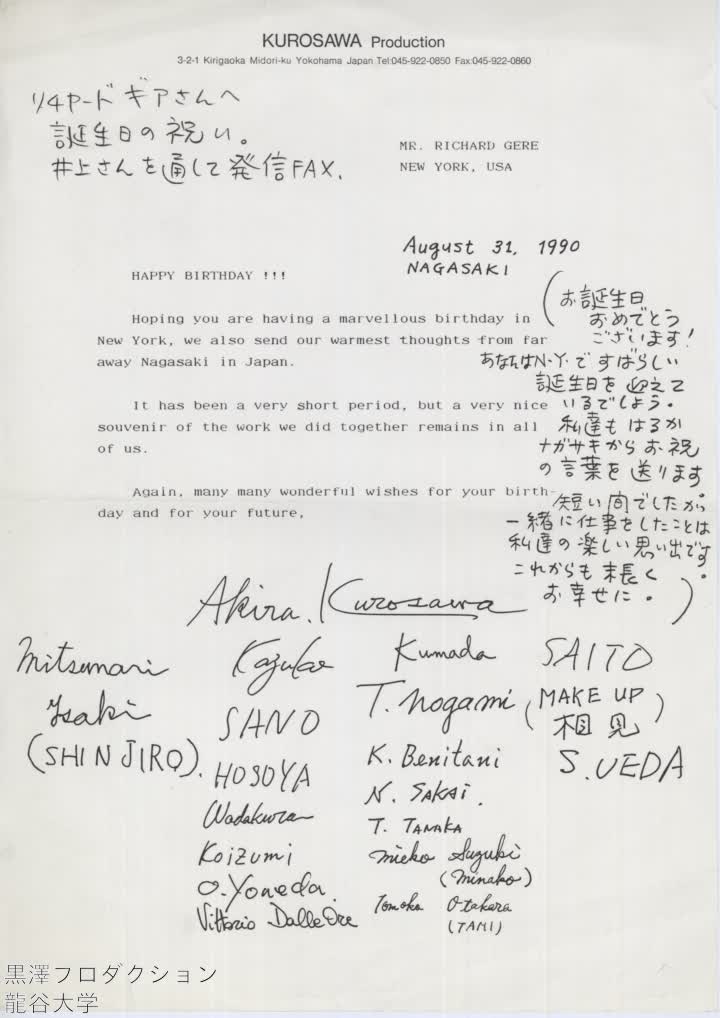 KUROSAWA Production
3-2-1 Kirigaoka Midori-ku Yokohama Japan Tel:045-922-0850 Fax:045-922-0860
リチャード ギアさんへ
誕生日の祝い。
井上さんを通して発信FAX.
MR. RICHARD GERE
NEW YORK, USA
August 31, 1990
NAGASAKI
HAPPY BIRTHDAY !!!
Hoping you are having a marvellous birthday in
New York, we also send our warmest thoughts from far
away Nagasaki in Japan.
It has been a very short period, but a very nice
souvenir of the work we did together remains in all
of us.
Again, many many wonderful wishes for your birth-
day and for your future,
(お誕生日
おめでとう
ございます!
あなたはN.Y.ですばらしい
誕生日を迎えて
いるでしょう。
私達もはるか
ナガサキからお祝
の言葉を送ります
短い間でしたが
一緒に仕事をしたことは
私達の楽しい思い出です。
これからも末長く
お幸せに。)
Akira. Kurosawa
Mitsunari
Isaki
(SHINJIRO).
Kazuko
SANO
HOSOYA
Wadakura
Koizumi
O. Yoneda
Vittorio Dalle Ore
Kumada
T. Nogami
K. Benitani
N. SAKAI.
T. TANAKA
Mieko Suzuki
(Minako)
Tomoko Otakara
(TAMI)
SAITO
(MAKE UP
相見)
S. UEDA
黒澤プロダクション
龍谷大学